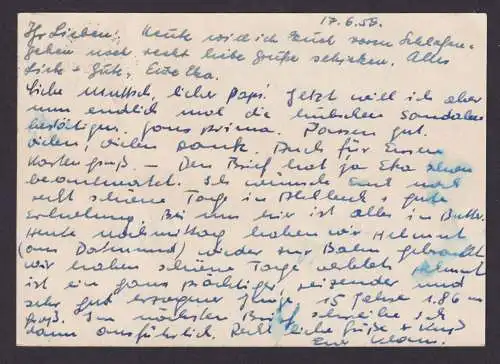 17.6.58.
Ihr Lieben! Heute will ich Euch vorm Schlafen-
gehen noch recht liebe Grüße schicken. Alles
Liebe + Gute, Eure Eka.
Liebe Mutsch, lieber Papi! Jetzt will ich aber
nun endlich mal die hübschen Sandalen
bestätigen. Ganz prima. Passen gut.
Vielen, vielen Dank. Auch für Euren
Kartengruß. – Den Brief hat ja Eka schon
beantwortet. Ich wünsche Euch noch
recht schöne Tage in + gute
Erholung. Bei uns hier ist alles in Butter.
Heute nachmittag haben wir Helmut
(aus Dortmund) wieder zur Bahn gebracht
wir haben schöne Tage verlebt. Helmut
ist ein ganz prächtiger, reizender und
sehr gut erzogener Junge. 15 Jahre 1.86 m
groß. Im nächsten Brief schreibe ich
dann ausführlich. Recht liebe Grüße + Kuß
Euer Klaus.